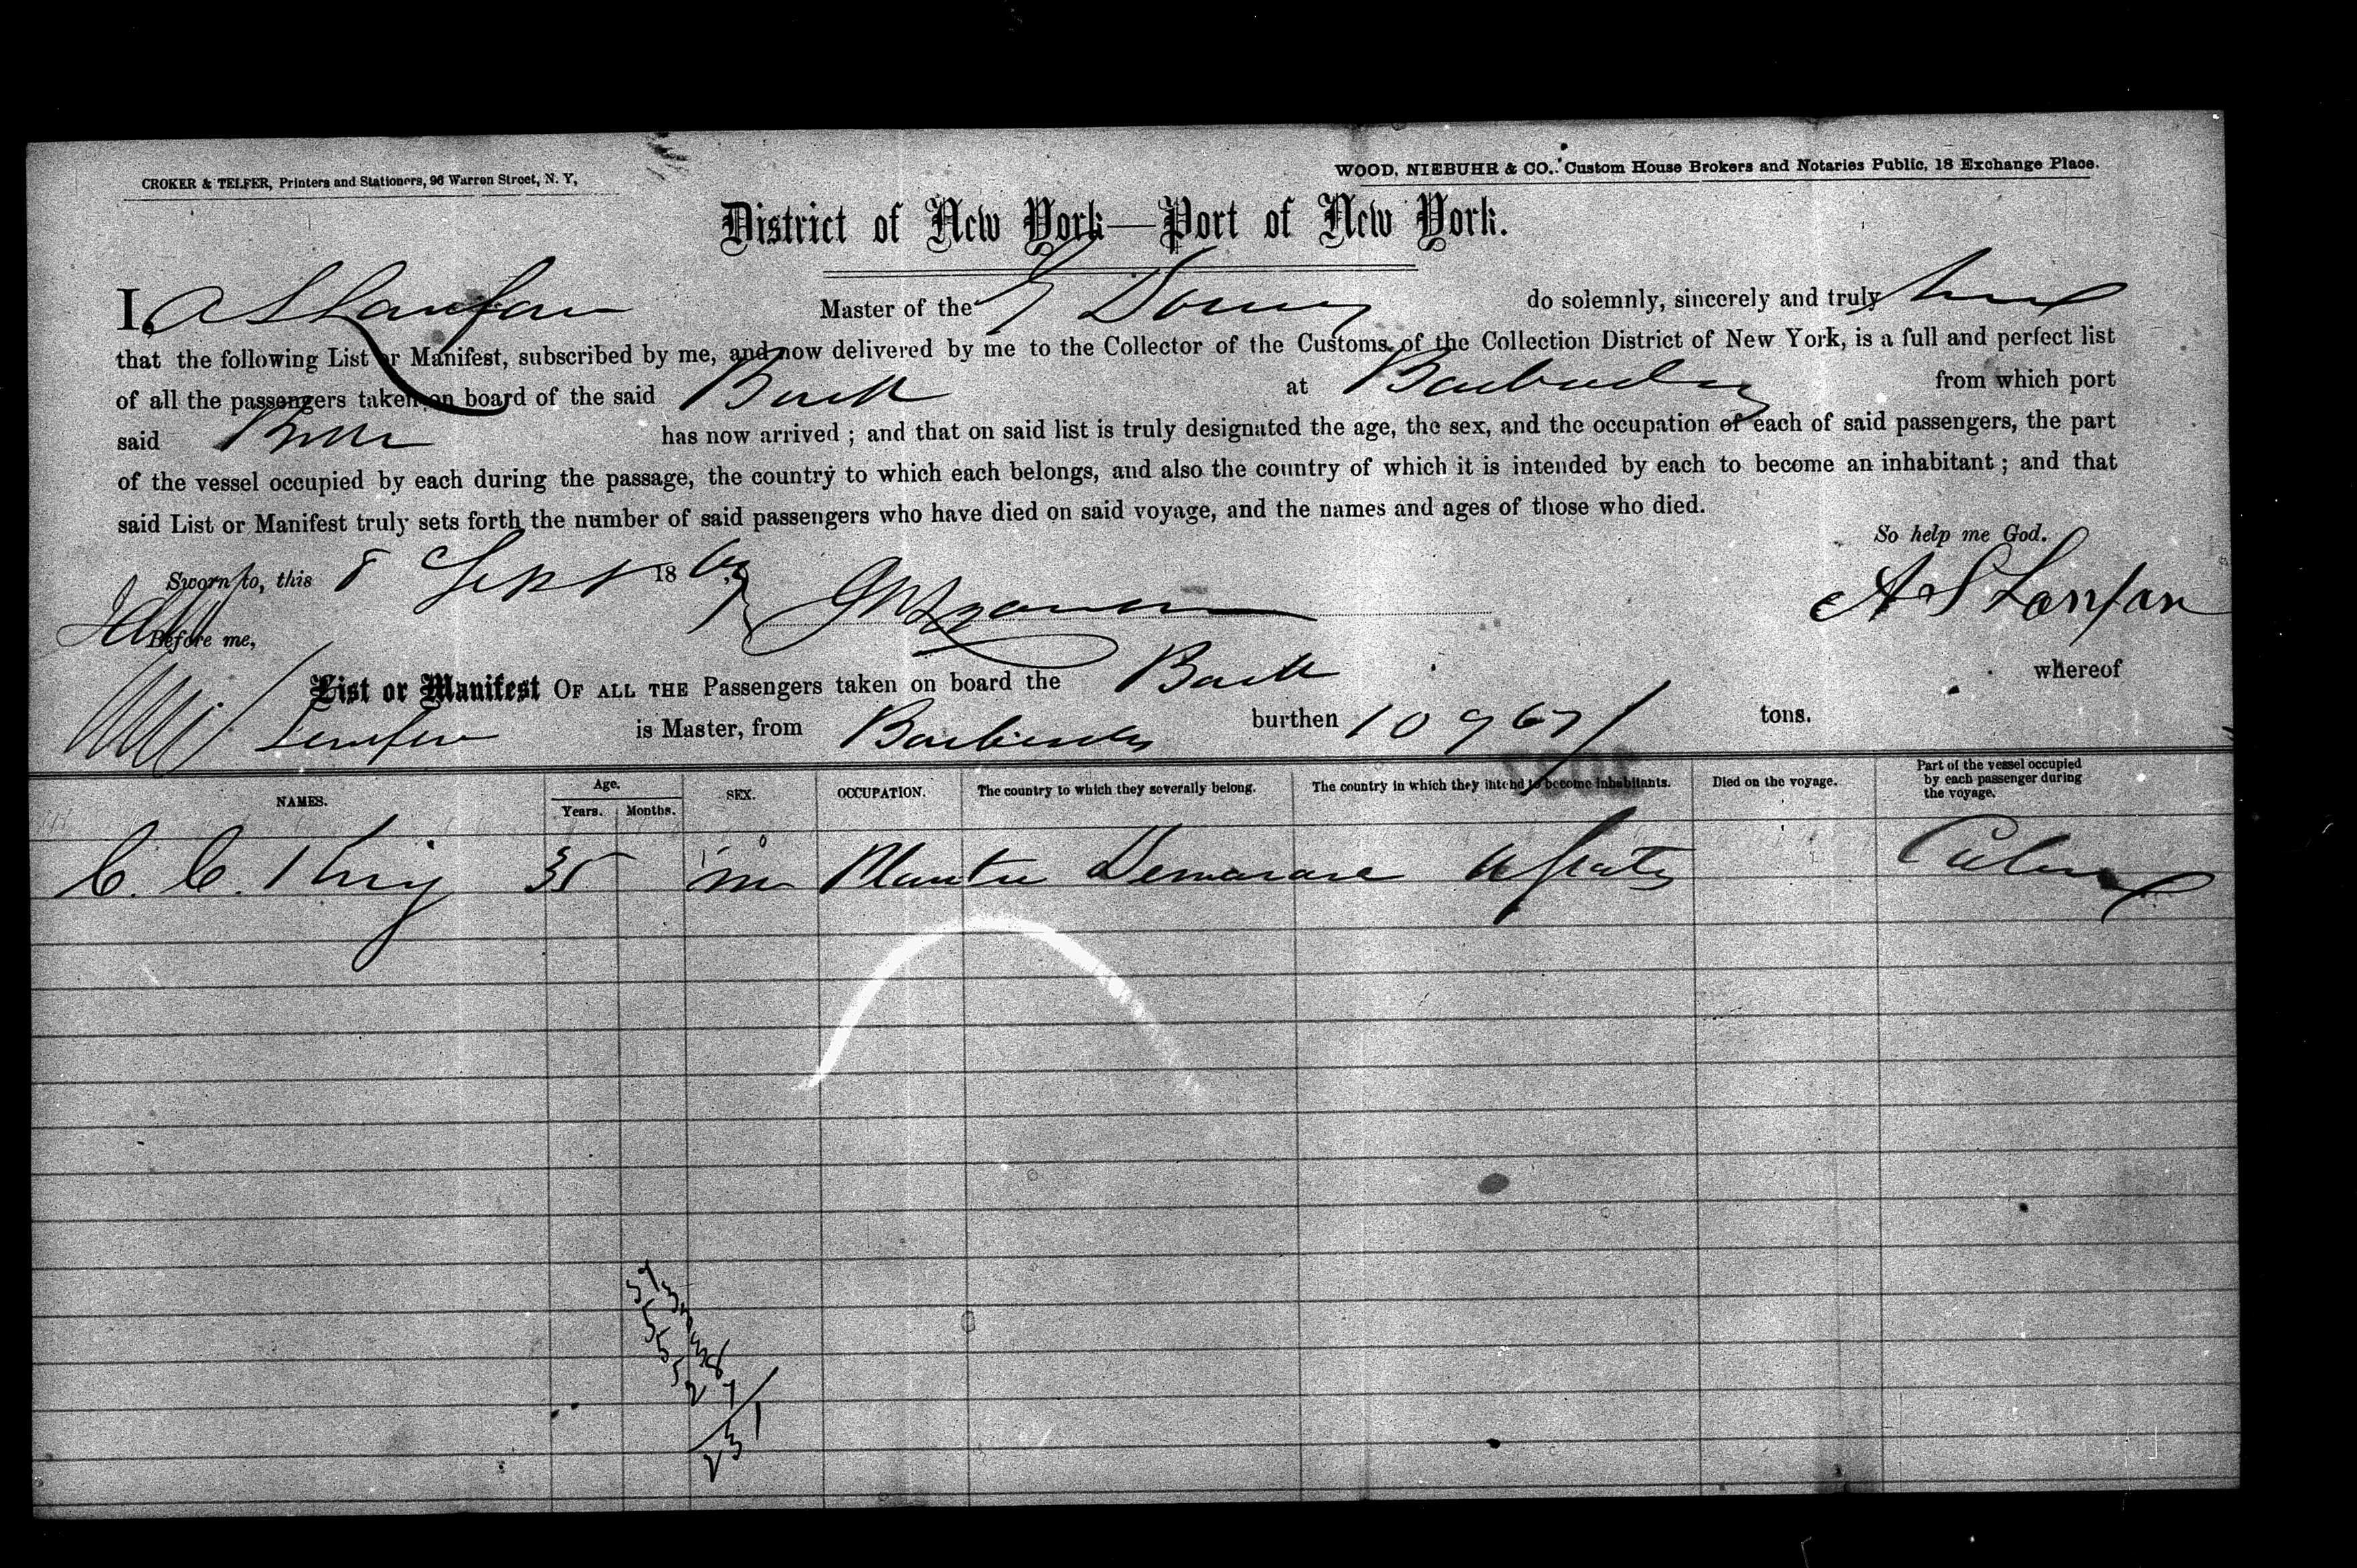 CROKER & TELFER, Printers and Stationers, 96 Warren Street, N. Y,
WOOD, NIEBUHR & CO., Custom House Brokers and Notaries Public, 18 Exchange Place.
District of New York—Port of New York.
I, A S Lanfare Master of the do solemnly, sincerely and truly
that the following List or Manifest, subscribed by me, and now delivered by me to the Collector of the Customs of the Collection District of New York, is a full and perfect list
of all the passengers taken on board of the said Bark at Barbados from which port
said Bark has now arrived ; and that on said list is truly designated the age, the sex, and the occupation of each of said passengers, the part
of the vessel occupied by each during the passage, the country to which each belongs, and also the country of which it is intended by each to become an inhabitant ; and that
said List or Manifest truly sets forth the number of said passengers who have died on said voyage, and the names and ages of those who died.
So help me God.
Sworn to, this 8 Sept 18
A S Lanfare
Before me,
List or Manifest OF ALL THE Passengers taken on board the Bark whereof
is Master, from Barbados burthen tons.
NAMES. Age. Years. Months. SEX. OCCUPATION. The country to which they severally belong. The country in which they intend to become inhabitants. Died on the voyage. Part of the vessel occupied by each passenger during the voyage.
C. C. King 35 m Planter Demarara U States Cabin